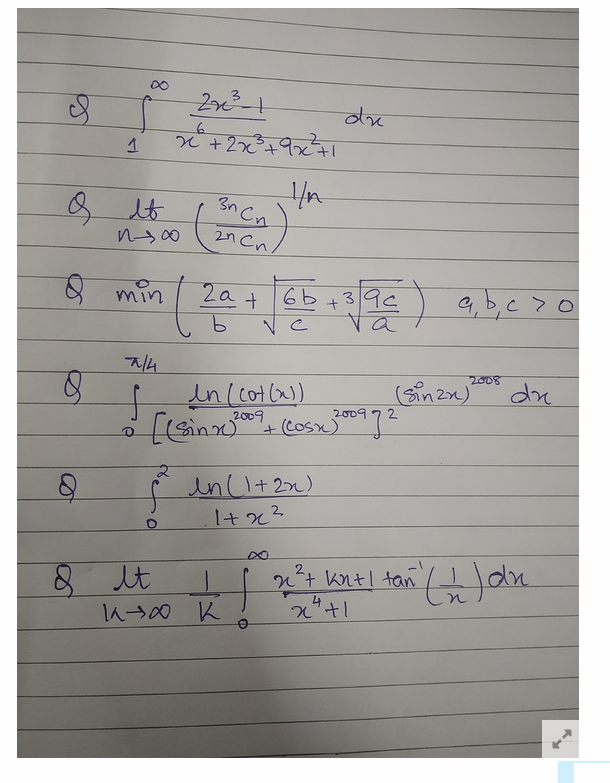 Q ∫₁^∞ (2x³ - 1)/(x⁶ + 2x³ + 9x² + 1) dx
Q lt n→∞ (³ⁿCₙ / ²ⁿCₙ)^(1/n)
Q min (2a/b + √(6b/c) + ∛(9c/a)) a, b, c > 0
Q ∫₀^(π/4) ln(cot(x))/[(sinx)^2009 + (cosx)^2009]² (sin2x)^2008 dx
Q ∫₀² ln(1+2x)/(1+x²)
Q lt K→∞ 1/K ∫₀^∞ (x² + Kx + 1)/(x⁴ + 1) tan⁻¹(1/x) dx